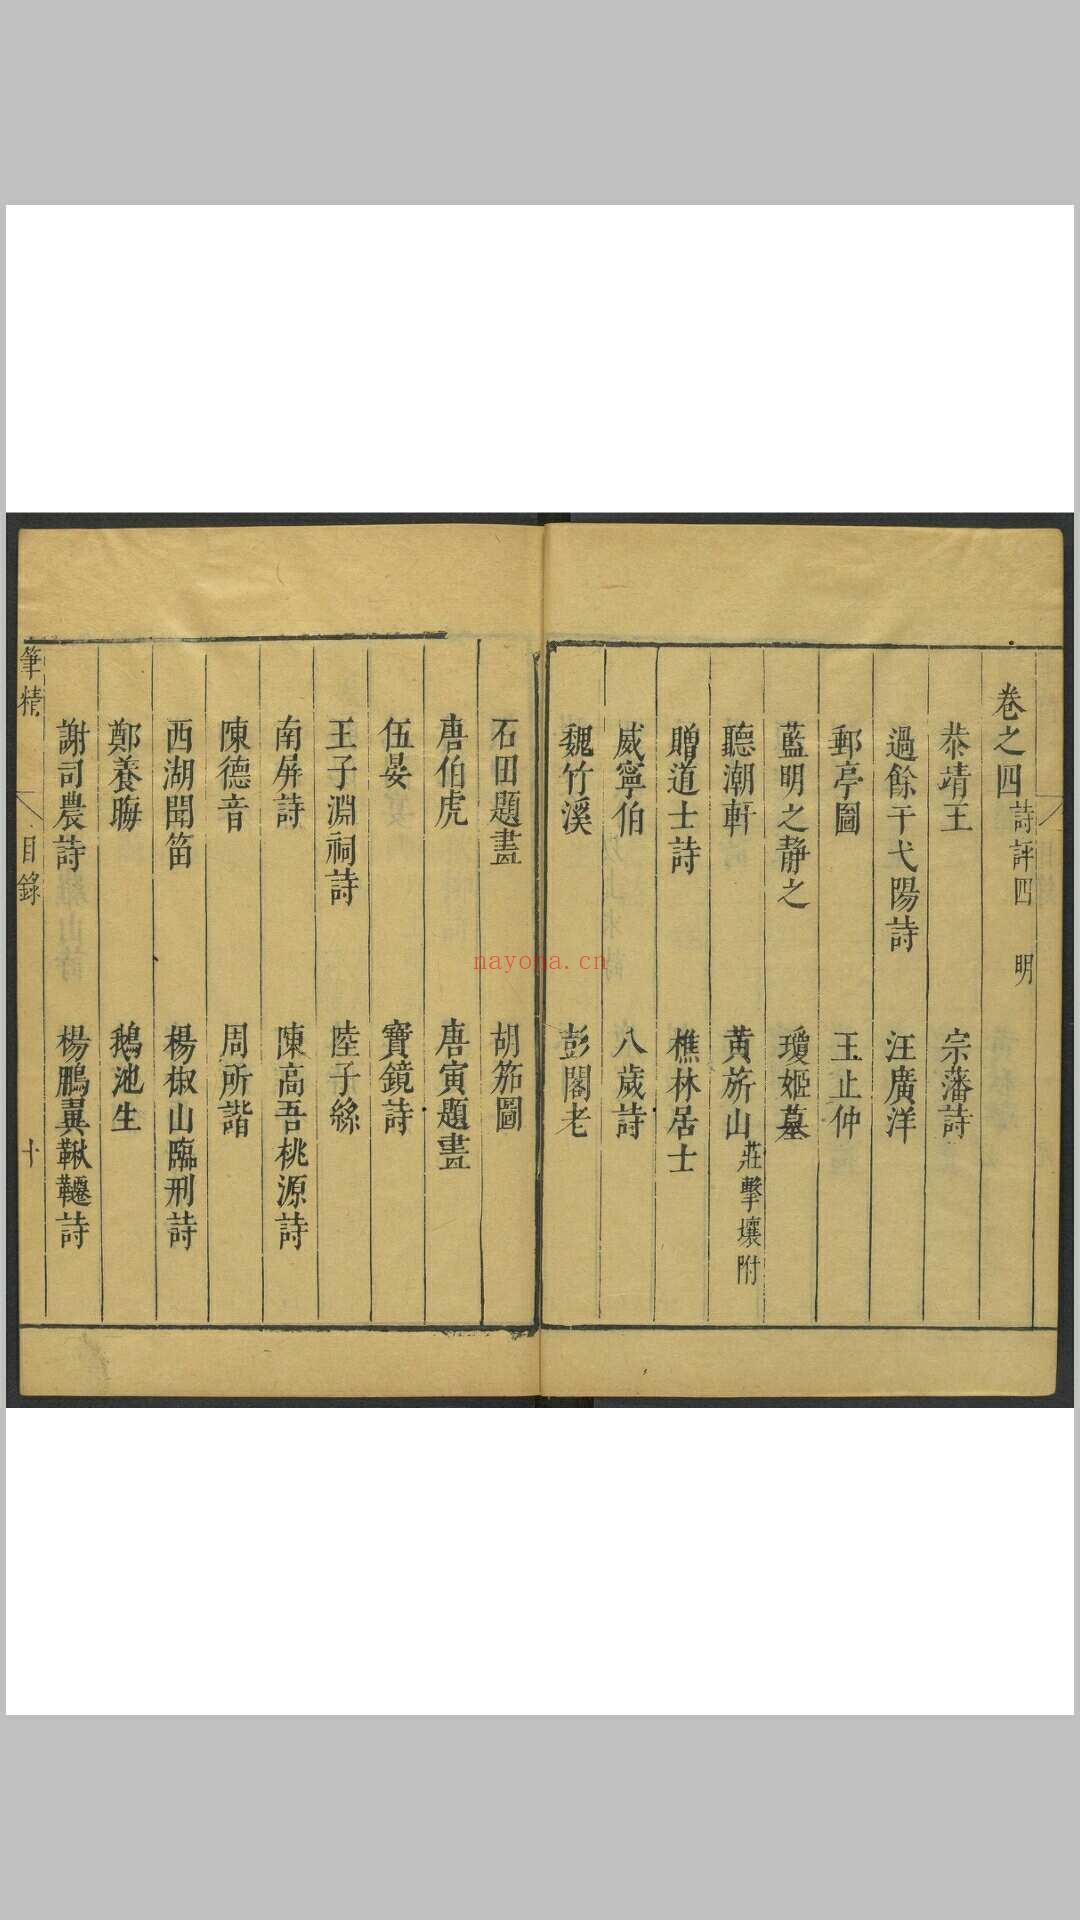 卷之四 詩評四 明
恭靖王 宗藩詩
過餘干弋陽詩 汪廣洋
郵亭圖 王止仲
藍明之靜之 瓊姬墓
聽潮軒 黃旂山 莊擊壤附
贈道士詩 樵林居士
威寧伯 八歲詩
魏竹溪 彭閣老
石田題畫 胡笳圖
唐伯虎 唐寅題畫
伍晏 寶鏡詩
王子淵祠詩 陸子絲
南屏詩 陳高吾桃源詩
陳德音 周所諧
西湖聞笛 楊椒山臨刑詩
鄭養晦 鵝池生
謝司農詩 楊鵬翼鞦韆詩
筆精 目錄 十
nayona.cn